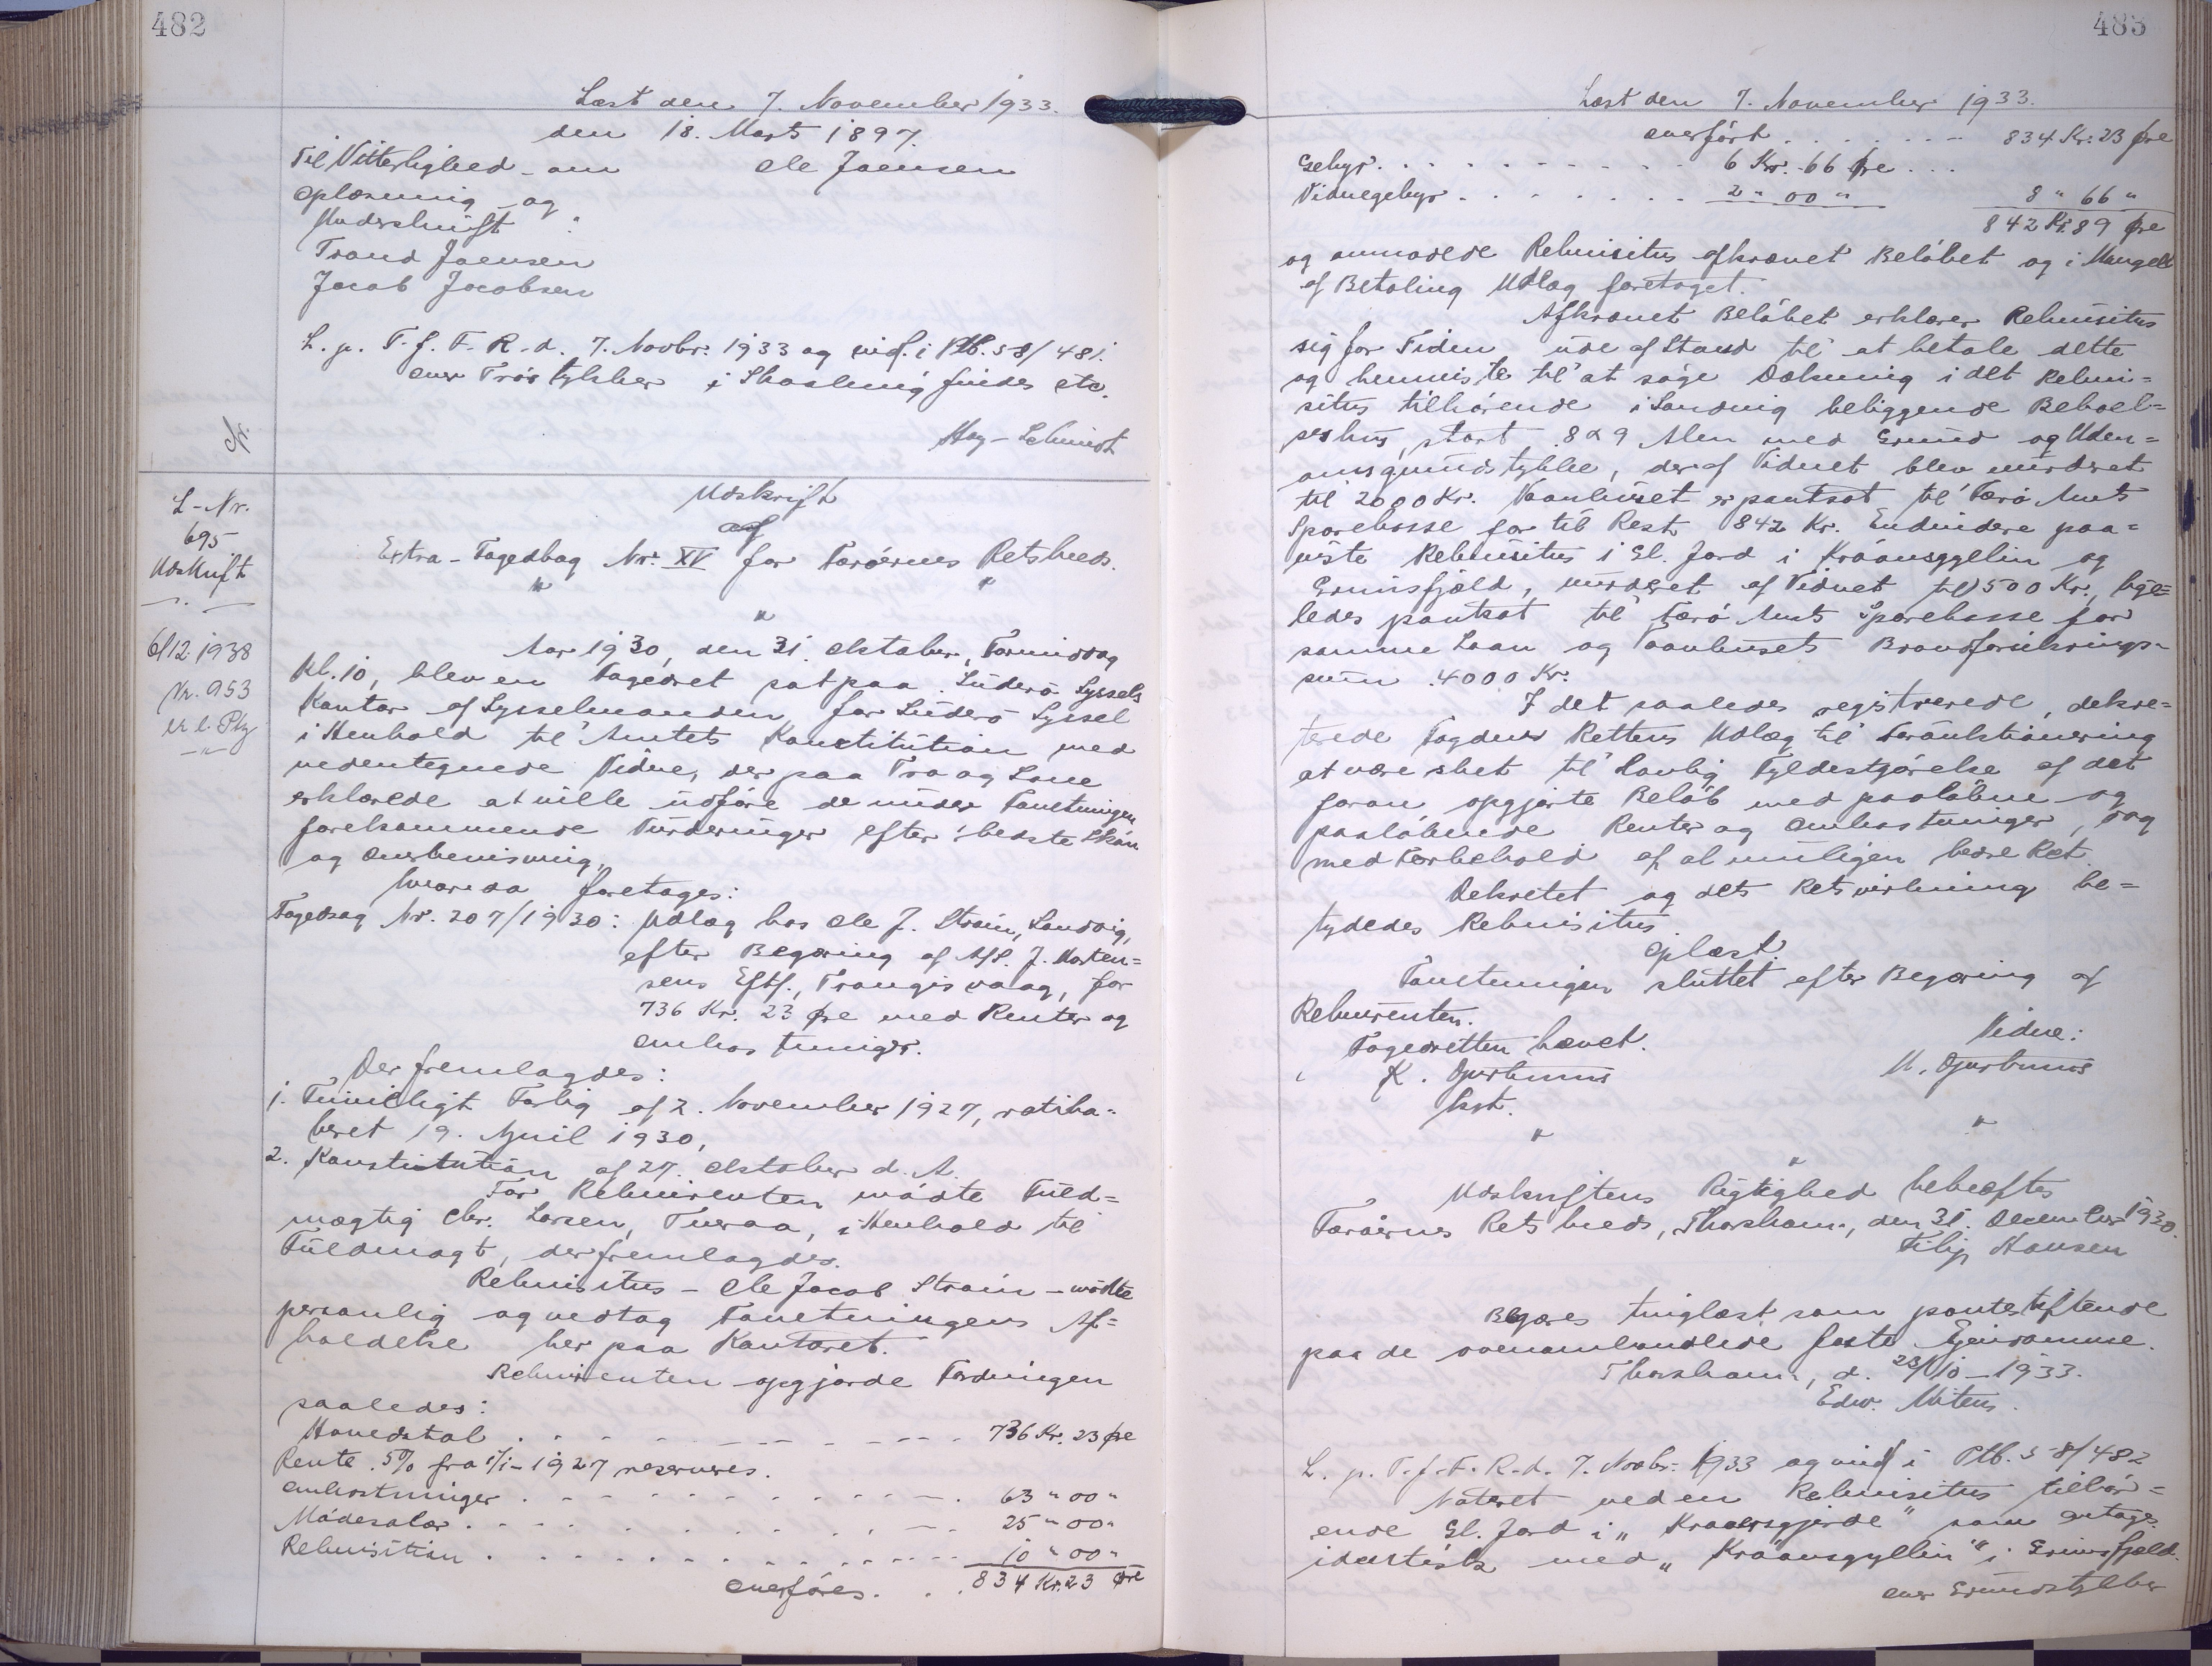 482
Læst den 7. November 1933.
den 18. Marts 1897.
Til Vitterlighed om Ole Joensen
Oplæsning og
Underskrift:
Trond Joensen
Jacob Jacobsen
L. p. T. f. F. R. d. 7. Novbr. 1933 og indf. i Ptb. S 8/481.
over Tröstykker i Skaalevig findes etc.
Hey-Schmidt
L-Nr.
695
Udskrift
6/12 1938
Nr. 953
Udskrift
af
Extra-Fogedbog Nr. XV for Færöernes Retskreds.
"
"
"
Aar 1930, den 31. Oktober, Formiddag
Kl. 10, blev en Fogedret sat paa Suderö Syssels
Kontor af Sysselmanden for Suderö Syssel
i Henhold til Amtets Konstitution med
undertegnede Vidne, der paa Tro og Love
erklærede at ville udføre de under Forretningen
forekommende Vurderinger efter bedste Skøn
og Overbevisning,
hvorda foretages:
Fogedsag Nr. 207/1930: Udlæg hos Ole J. Stroim, Sandvig,
efter Begæring af Afd. J. Morten=
sens Eftf., Trangisvaag, for
736 Kr. 23 Øre med Renter og
Omkostninger.
Der fremlagdes:
1. Frivilligt Forlig af 2. November 1927, ratiha=
beret 19. April 1930,
2. Konstitution af 27. Oktober d. A.
For Rekvirenten mødte Fuld=
mægtig Chr. Larsen, Tveraa, i Henhold til
Fuldmagt, der fremlagdes.
Rekvisitus - Ole Jacob Stroim - mödte
personlig og vedtog Forretningens Af=
holdelse her paa Kontoret.
Rekvirenten opgjorde Fordringen
saaledes:
Hovedstol . . . . . 736 Kr. 23 Øre
Rente 5% fra 1/1-1927 reserveres.
Omkostninger . . . . . 63 " 00 "
Mødesalær . . . . . 25 " 00 "
Rekvisition . . . . . 10 " 00 "
Overføres . . . 834 Kr. 23 Øre
483
Læst den 7. November 1933.
overført . . . . . 834 Kr. 23 Øre
Gebyr . . . . . 6 Kr. 66 Øre . . .
Vidnegebyr . . . . . 2 " 00 " 8 " 66 "
842 Kr. 89 Øre
og anmodede Rekvisitus afkrævet Beløbet og i Mangel
af Betaling Udlæg foretaget.
Afkrævet Beløbet erklærer Rekvisitus
sig for Tiden ude af Stand til at betale dette
og henviste til at søge Dækning i det Rekvi=
situs tilhørende i Sandvig beliggende Beboel=
seshus, stort 8 x 9 Alen med Grund og Uden=
omsgrundstykke, der af Vidnet blev vurderet
til 2000 Kr. Vaanhuset er pantsat til Færö Amts
Sparekasse for til Rest 842 Kr. Endvidere paa=
viste Rekvisitus i Gl. Jord i Kráansgyllin og
Grimsfjæld, vurderet af Vidnet til 500 Kr., lige=
ledes pantsat til Færö Amts Sparekasse for
samme Laan og Vaanhusets Brandforsikrings=
sum 4000 Kr.
I det saaledes registrerede, dekre=
terede Fogden Rettens Udlæg til Foräuktionering
at være sket til Lovlig Fyldestgørelse af det
foran opgjorte Beløb med paaløbne og
paaløbende Renter og Omkostninger, dog
med Forbehold af al muligen bedre Ret.
Dekretet og dets Retsvirkning be=
tydedes Rekvisitus.
Oplæst.
Forretningen sluttet efter Begæring af
Rekvirenten.
Fogedretten hævet. Vidne:
K. Djurhuus M. Djurhuus
kst.
"
"
"
Udskriftens Rigtighed bekræftes
Færöernes Retskreds, Thorshavn, den 31. December 1930.
Filip Hansen
Begæres tinglæst som pantestiftende
paa de ovenomhandlede faste Ejendomme.
Thorshavn, d. 23/10-1933.
Edw. Mitens.
L. p. T. f. F. R. d. 7. Novbr. 1933 og indf i Ptb. S 8/482
Noteret veden Rekvisitus tilhør=
ende Gl. Jord i "Kraaersgjerde" som antages
identisk med "Kráansgyllin" i Grimsfjæld.
over Grundstykker